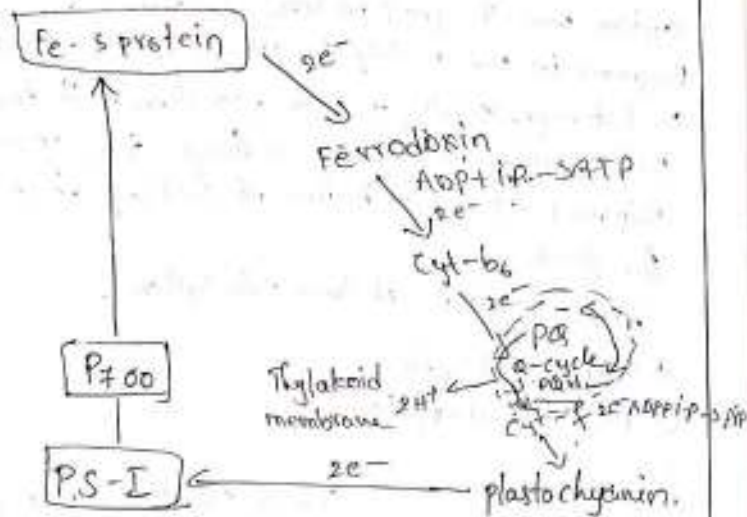 Fe-S protein
2e⁻
Ferrodoxin
ADP + iP → ATP
2e⁻
Cyt-b6
2e⁻
PQ
Q-cycle
Thylakoid
membrane
2H⁺
Cyt-f
2e⁻ ADP + iP →
P700
P.S-I
2e⁻
plastochyanin.